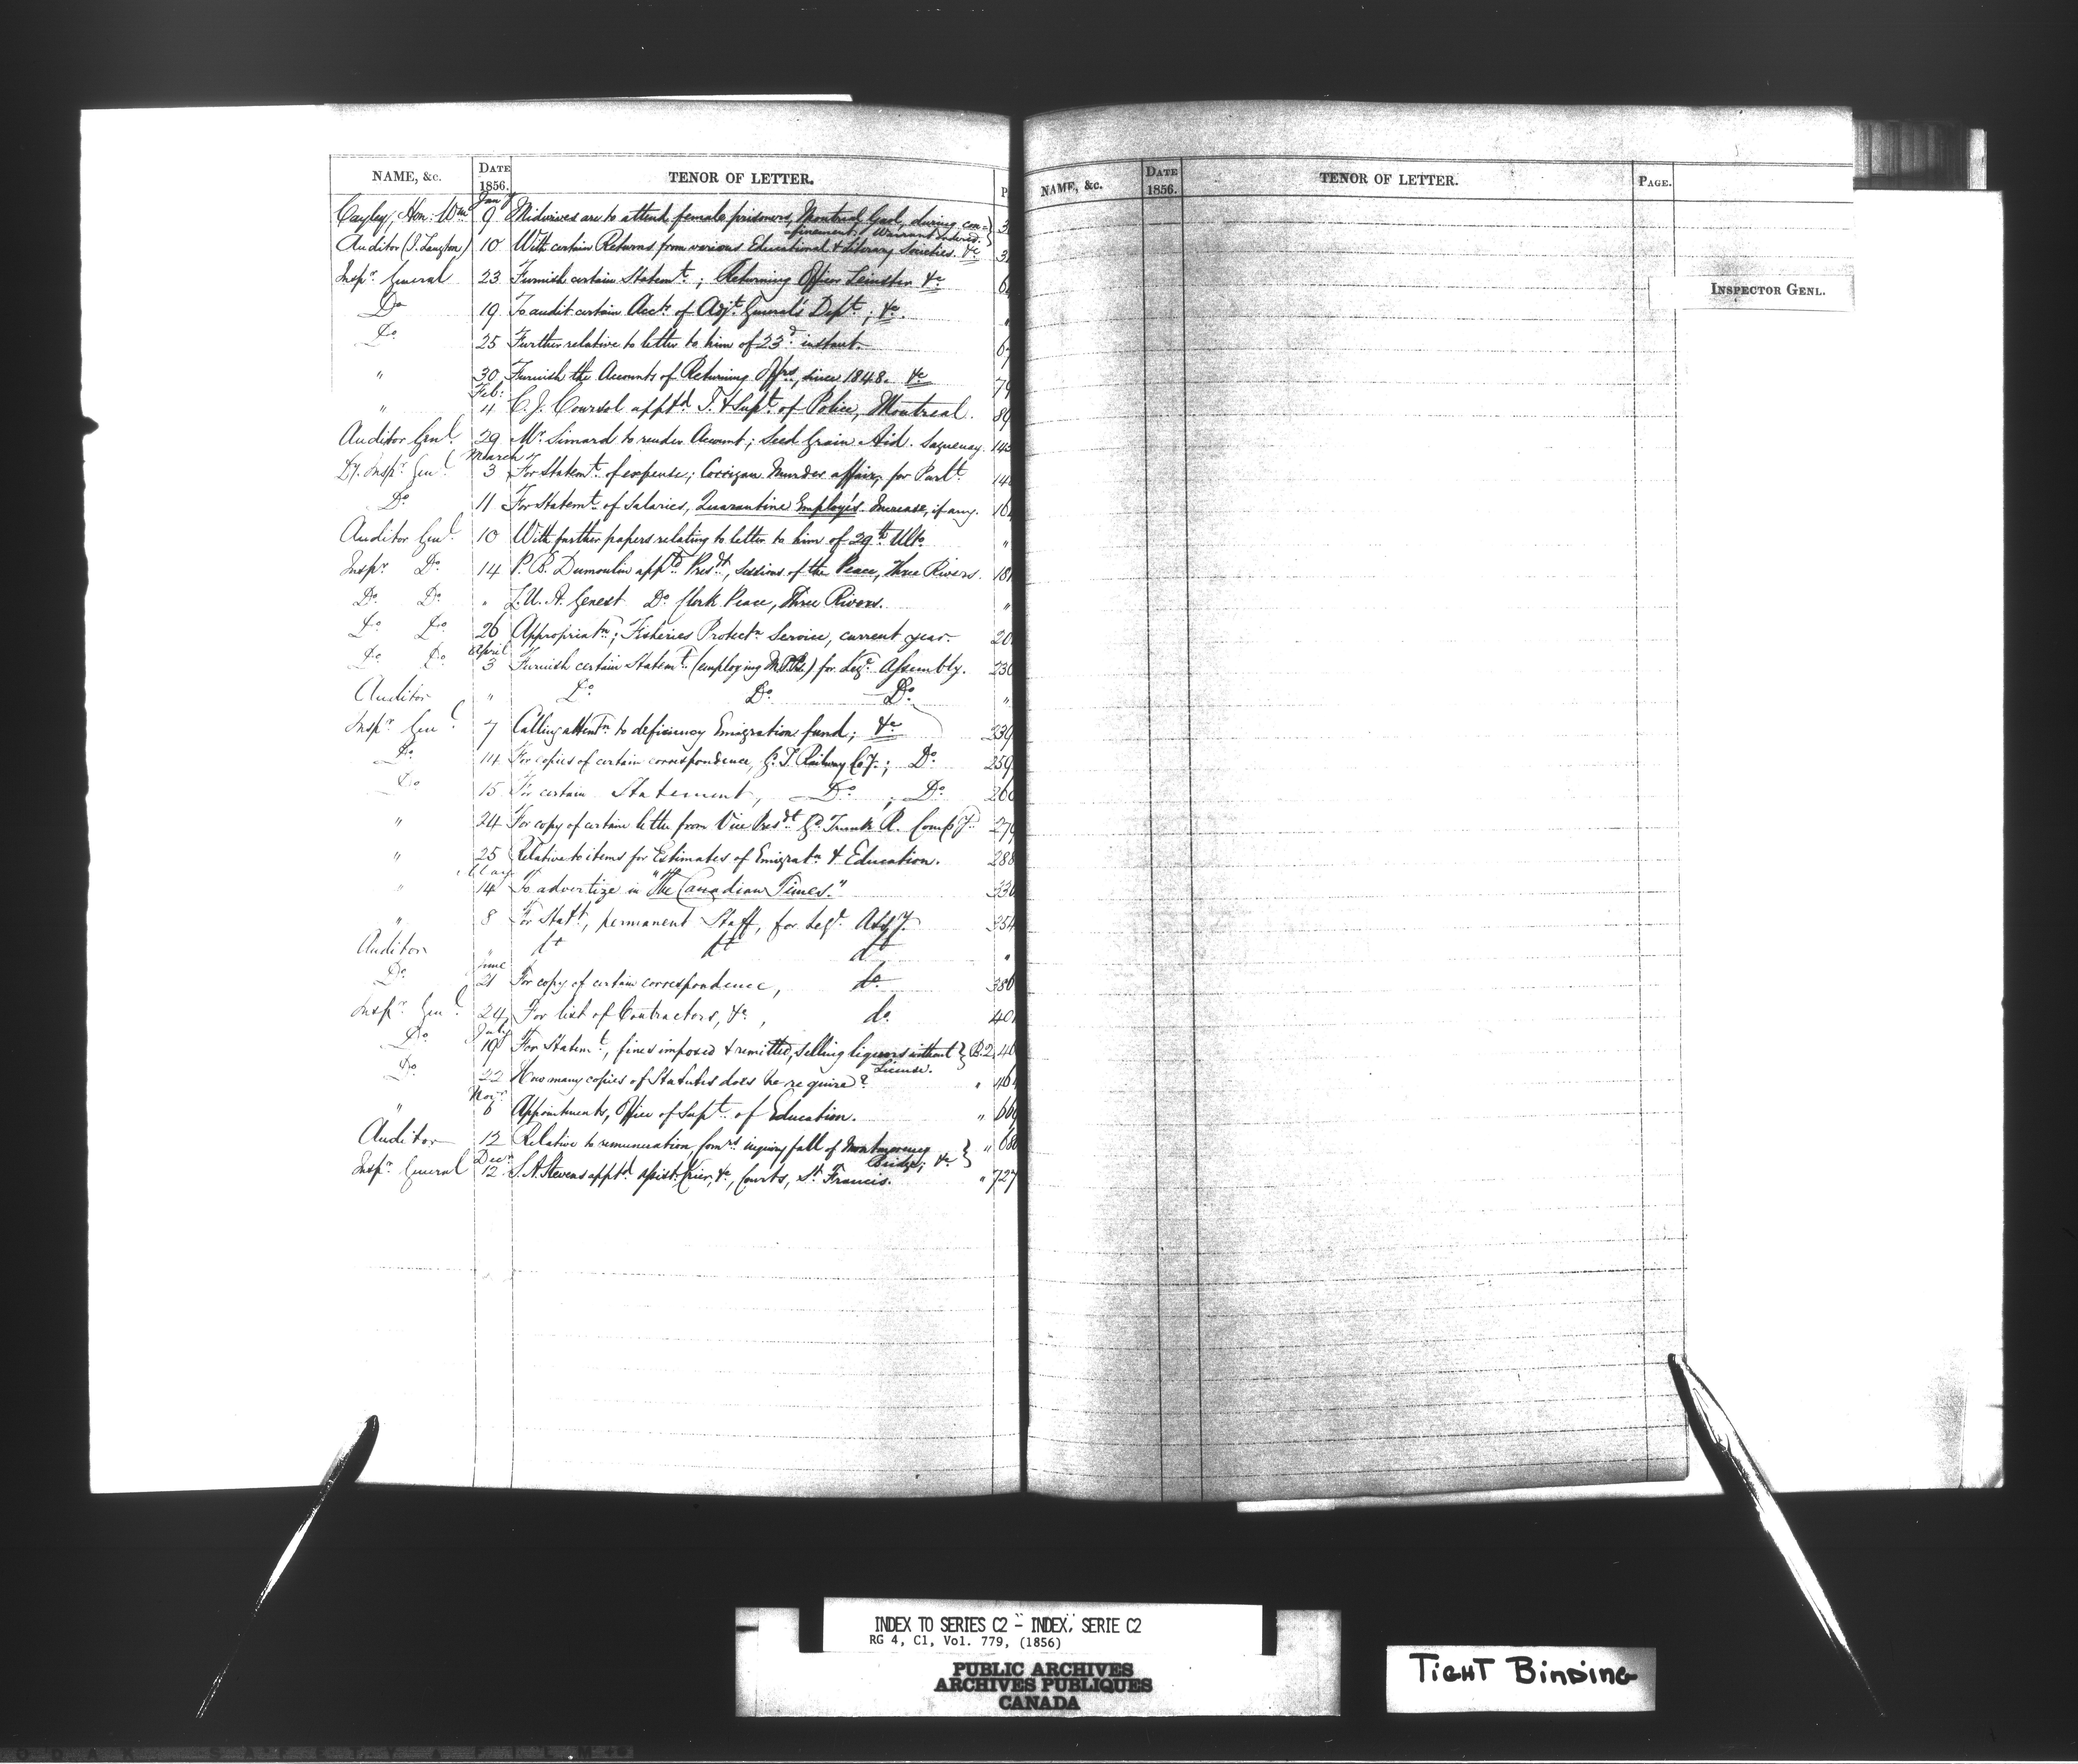 NAME, &c. DATE 1856. TENOR OF LETTER. P
Jany
Cayley, Hon: Wm 9 Midwives are to attend female prisoners, Montreal Gaol, during con= } 3
finement; Warrant ordered.
Auditor (J. Langton) 10 With certain Returns from various Educational & Literary Societies. &c 3
Inspr General 23 Furnish certain Statemt; Returning Officer Leinster &c 6
Do 19 To audit certain Accts of Adjt General's Dept; &c. "
Do 25 Further relative to letter to him of 23d instant. 6
" 30 Furnish the Accounts of Returning Offrs, since 1848. &c 79
Feb:
" 4 C. J. Coursol apptd I. & Supt of Police, Montreal. 89
Auditor Genl. 29 Mr Simard to render Account; Seed Grain Aid. Saguenay. 143
March
Dy. Inspr Genl 3 For Statemt of expense; Corrigan Murder affair, for Parlt. 14
Do 11 For Statemt of Salaries, Quarantine Employés. Increase, if any. 16
Auditor Genl. 10 With further papers relating to letter to him of 29th Ulto "
Inspr Do 14 P. B. Dumoulin apptd Presdt, Sessions of the Peace, Three Rivers. 18
Do Do " L. U. A. Genest Do Clerk Peace, Three Rivers. "
Do Do 26 Appropriatn; Fisheries Protectn Service, current year. 20
April
Do Do 3 Furnish certain Statemt (employing M.P.Ps.) for Legr Assembly. 230
Auditor " Do Do Do "
Inspr Genl 7 Calling attentn to deficiency Emigration fund; &c 239
Do 14 For copies of certain correspondence, G. T. Railway Coy.; Do 259
Do 15 For certain Statement, Do ; Do 260
" 24 For copy of certain letter from Vice Presdt Gd Trunk R. Compy. 279
" 25 Relative to items for Estimates of Emigratn & Education. 288
May
" 14 To advertize in "The Canadian Times." 330
" 8 For Statt, permanent Staff, for Legr Assy. 354
Auditor " do do do "
June
Do 21 For copy of certain correspondence, do 386
Inspr Genl 24 For list of Contractors, &c , do 40
July
Do 19 For Statemt, fines imposed & remitted, selling liquors without } B.2, 46
License.
Do 22 How many copies of Statutes does he require? " 46
Novr
" 6 Appointments, Office of Supt of Education. " 66
Auditor 12 Relative to remuneration, Comrs inquiry fall of Montmorency } " 68
Bridge; &c
Decr
Inspr General 12 S. A. Stevens apptd Assist. Crier, &c, Courts, St Francis. " 727
NAME, &c. DATE 1856. TENOR OF LETTER. PAGE.
INSPECTOR GENL.
INDEX TO SERIES C2 - INDEX, SERIE C2
RG 4, C1, Vol. 779, (1856)
PUBLIC ARCHIVES
ARCHIVES PUBLIQUES
CANADA
TIGHT BINDING